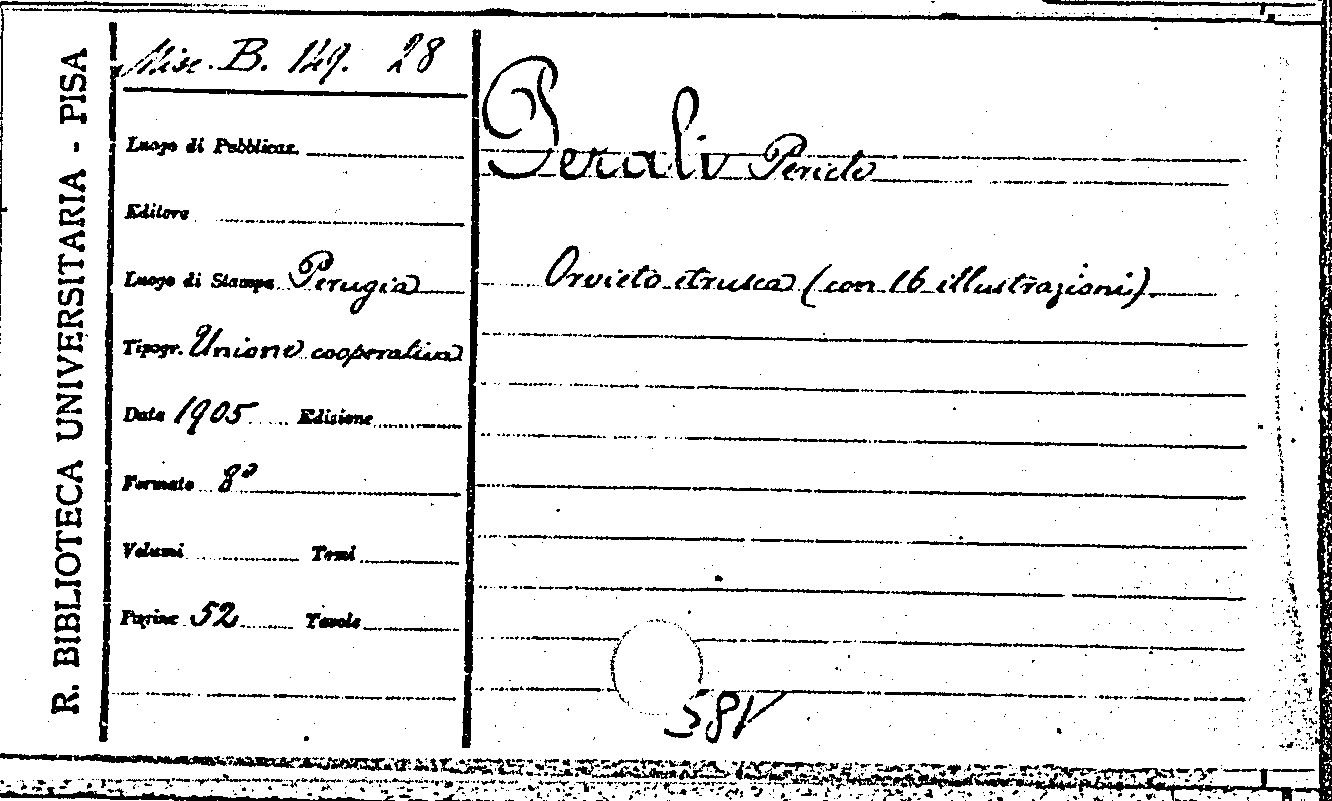 R. BIBLIOTECA UNIVERSITARIA - PISA
Misc. B. 149. 28
Luogo di Pubblicaz.
Editore
Luogo di Stampa Perugia
Tipogr. Unione cooperativa
Data 1905 Edizione
Formato 8°
Volumi Tomi
Pagine 52 Tavole
Perali Pericle
Orvieto etrusca (con 16 illustrazioni)